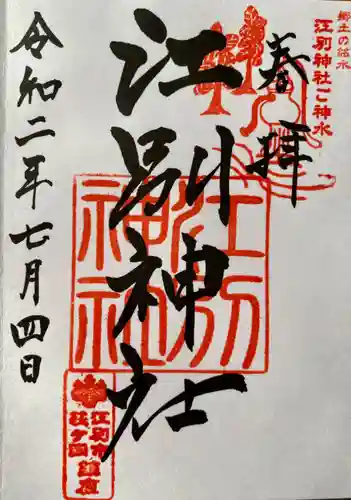 郷土の銘水
江別神社ご神水
奉拝
江別神社
江別神社
令和二年七月四日
江別市
萩ヶ岡鎮座